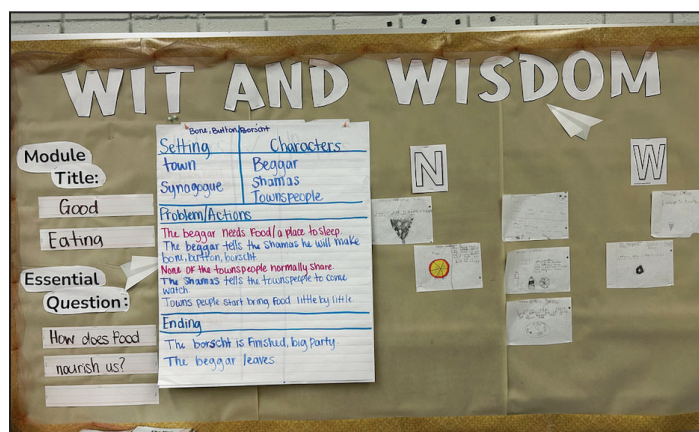 WIT AND WISDOM
Module
Title:
Good
Eating
Essential
Question:
How does Food
nourish us?
Bone, Button, Borscht
Setting
Characters
town
Synagogue
Beggar
Shamas
Townspeople
Problem/Actions
The beggar needs Food/a place to sleep.
The beggar tells the Shamas he will make
bone, button, borscht.
None of the townspeople normally share.
The Shamas tells the townspeople to come
watch.
Towns people start bring Food little by little.
Ending
The borscht is Finished, big party.
The beggar leaves
N
W